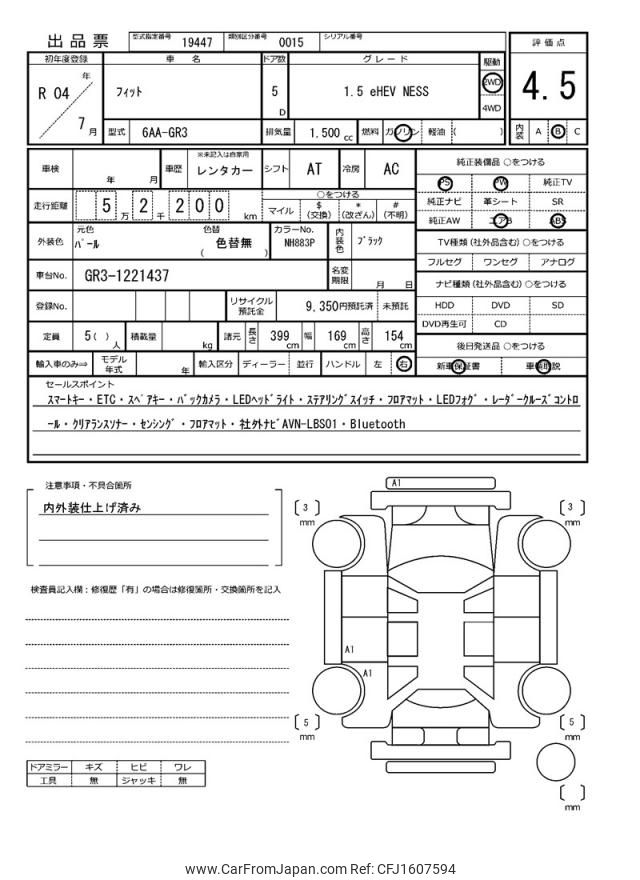 出品票 型式指定番号 19447 類別区分番号 0015 シリアル番号
評価点
4.5
内装 A B C
初年度登録 車名 ドア数 グレード 駆動
R 04 年 7 月
フィット 5 D 1.5 eHEV NESS 2WD 4WD
型式 6AA-GR3 排気量 1.500 cc 燃料 ガソリン 軽油 ( )
車検 年 月 車歴 ※未記入は自家用 レンタカー シフト AT 冷房 AC
走行距離 5 万 2 千 2 0 0 km ○をつける
マイル $ (交換) * (改ざん) # (不明)
外装色 元色 パール 色替 ( 色替無 ) カラーNo. NH883P 内装色 ブラック
車台No. GR3-1221437 名変期限 月 日
登録No. リサイクル預託金 9,350円預託済 未預託
定員 5( ) 人 積載量 kg 諸元 長さ 399 cm 幅 169 cm 高さ 154 cm
輸入車のみ⇒ モデル年式 年 輸入区分 ディーラー 並行 ハンドル 左 右
純正装備品 ○をつける
PS PW 純正TV
純正ナビ 革シート SR
純正AW エアB ABS
TV種類(社外品含む)○をつける
フルセグ ワンセグ アナログ
ナビ種類(社外品含む)○をつける
HDD DVD SD
DVD再生可 CD
後日発送品 ○をつける
新車保証書 車輌取説
セールスポイント
スマートキー・ETC・スペアキー・バックカメラ・LEDヘッドライト・ステアリングスイッチ・フロアマット・LEDフォグ・レーダークルーズコントロ
ール・クリアランスソナー・センシング・フロアマット・社外ナビAVN-LBS01・Bluetooth
注意事項・不具合箇所
内外装仕上げ済み
検査員記入欄:修復歴「有」の場合は修復箇所・交換箇所を記入
ドアミラー キズ ヒビ ワレ
工具 無 ジャッキ 無
A1
[ 3 ] mm
[ 3 ] mm
A1
A1
[ 5 ] mm
[ 5 ] mm
[ ] mm
www.CarFromJapan.com Ref: CFJ1607594